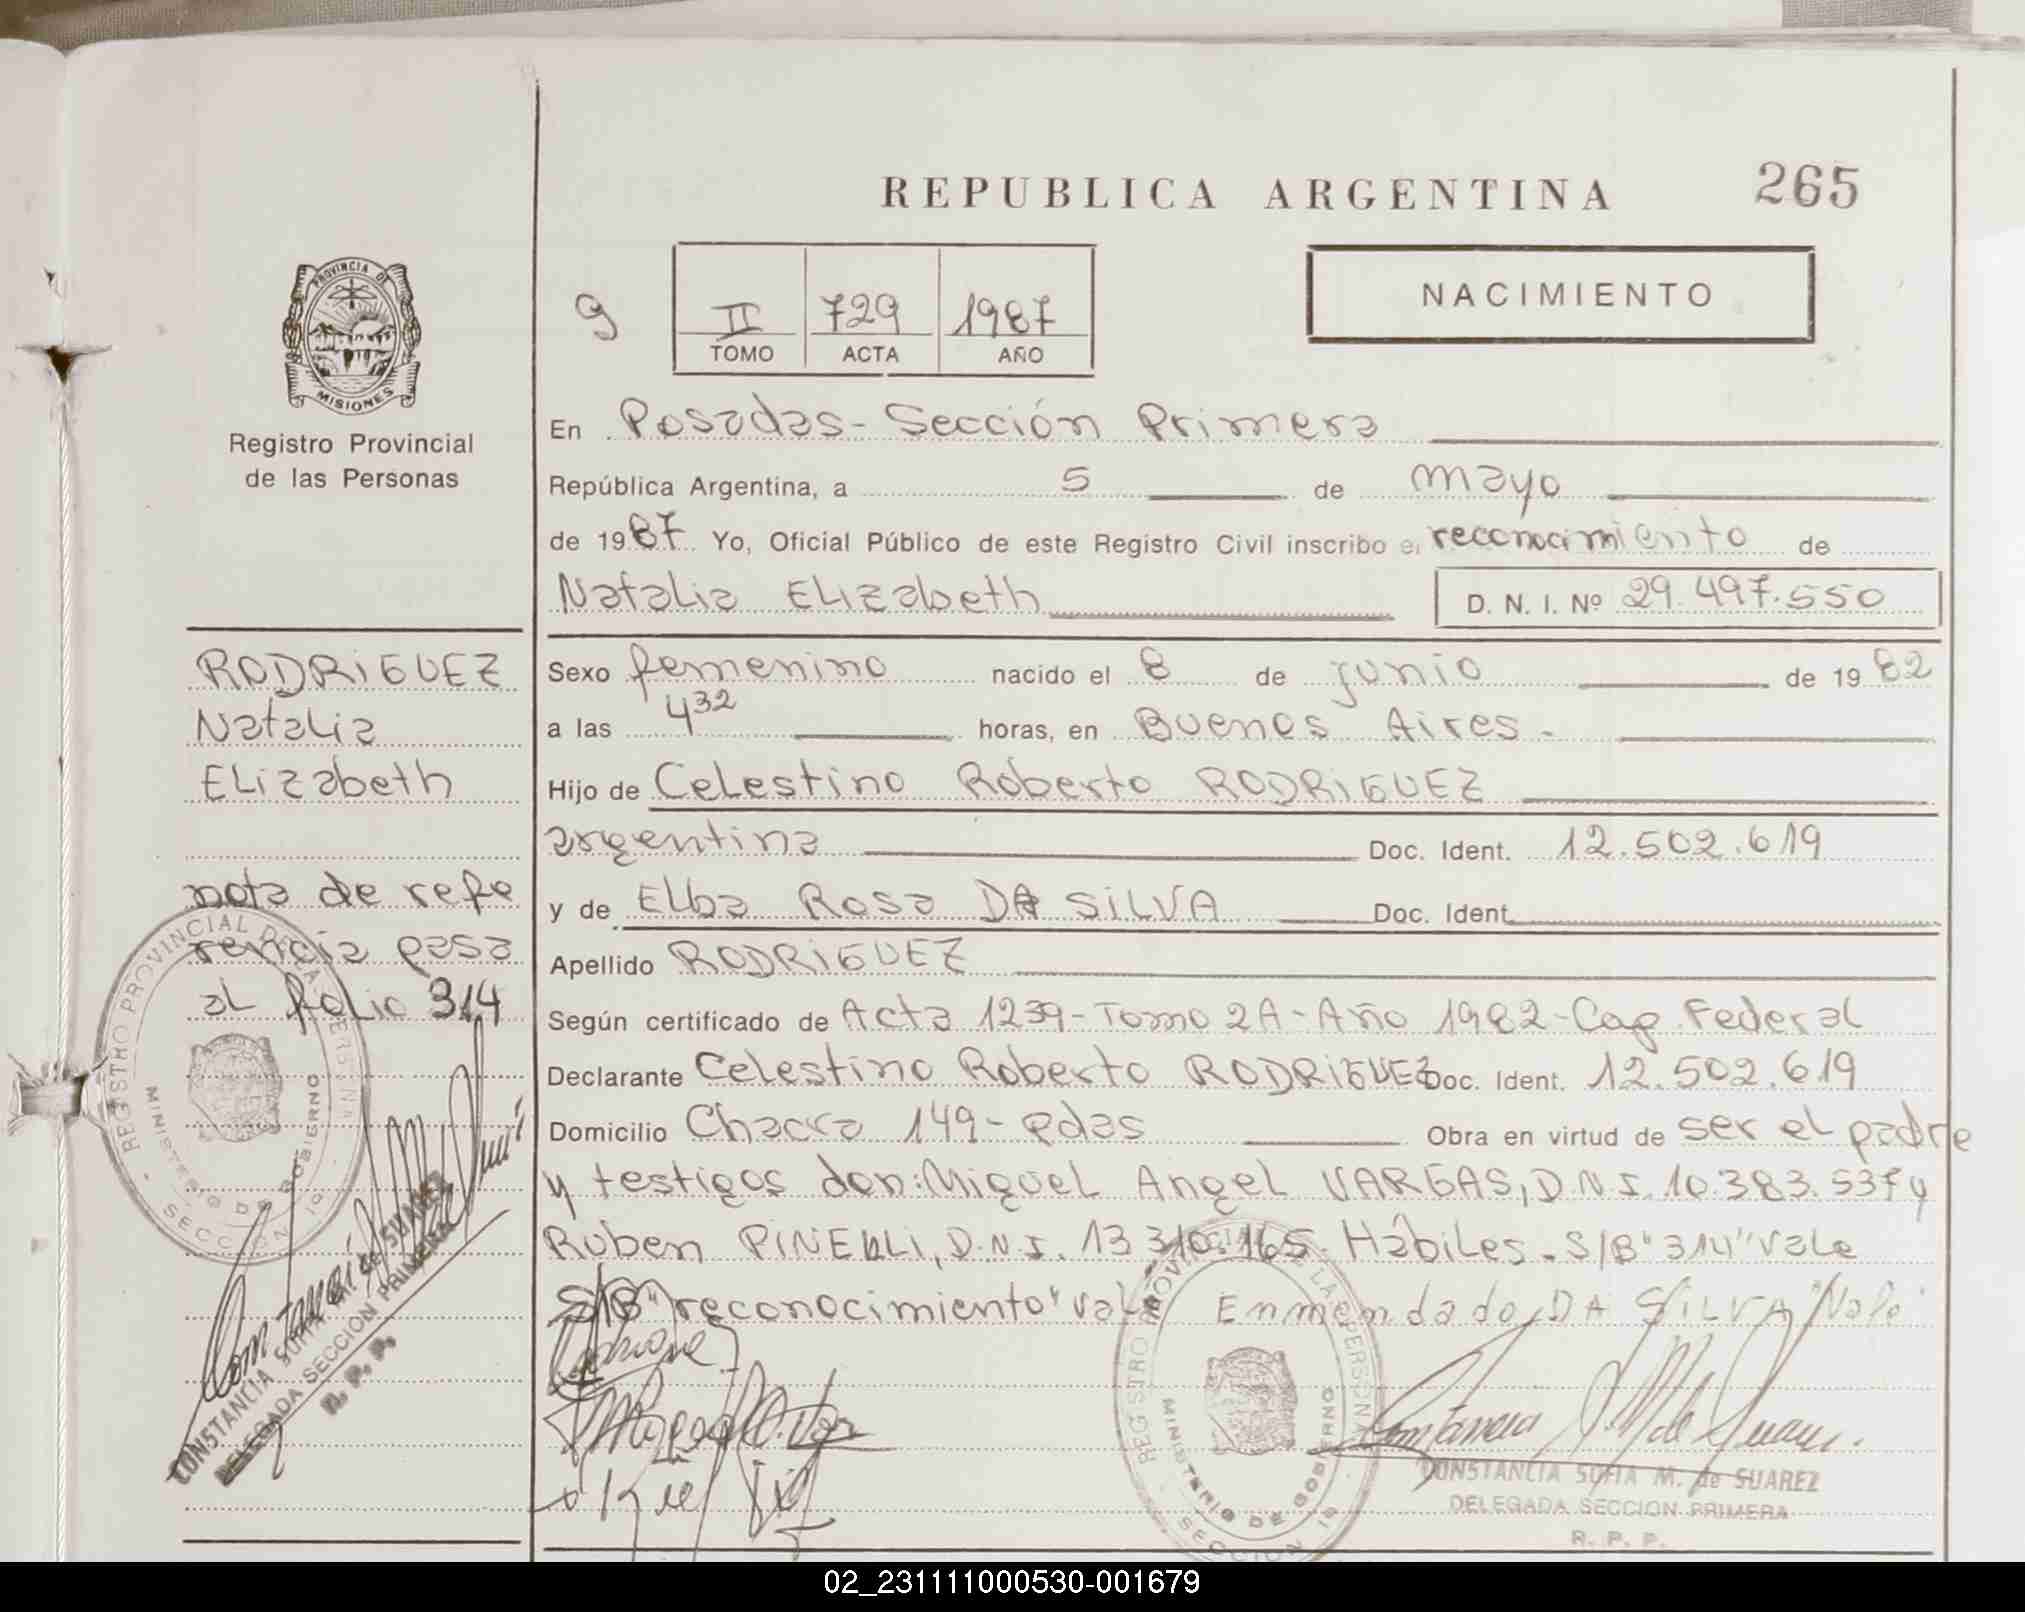 REPUBLICA ARGENTINA 265
PROVINCIA DE
MISIONES
Registro Provincial
de las Personas
9
II 729 1987
TOMO ACTA AÑO
NACIMIENTO
En Posadas - Sección Primera
República Argentina, a 5 de mayo
de 1987 Yo, Oficial Público de este Registro Civil inscribo el reconocimiento de
Natalia Elizabeth D. N. I. Nº 29.497.550
Sexo femenino nacido el 8 de junio de 1982
a las 4 32 horas, en Buenos Aires.-
Hijo de Celestino Roberto RODRIGUEZ
argentina Doc. Ident. 12.502.619
y de Elba Rosa DA SILVA Doc. Ident.
Apellido RODRIGUEZ
Según certificado de Acta 1239 - Tomo 2A - Año 1982 - Cap. Federal
Declarante Celestino Roberto RODRIGUEZ Doc. Ident. 12.502.619
Domicilio Chacra 149 - Pdas Obra en virtud de ser el padre
y testigos don: Miguel Angel VARGAS, D.N.I. 10.383.537 y
Ruben PINELLI, D.N.I. 13.310.165. Hábiles. - S/B "314" vale
S/B "reconocimiento" vale Enmendado, DA SILVA "Vale"
RODRIGUEZ
Natalia
Elizabeth
nota de refe
rencia pasa
al folio 314
REGISTRO PROVINCIAL DE LAS PERSONAS
MINISTERIO DE GOBIERNO
SECCION 1ª
CONSTANCIA SOFIA M. de SUAREZ
DELEGADA SECCION PRIMERA
R. P. P.
REGISTRO PROVINCIAL DE LAS PERSONAS
MINISTERIO DE GOBIERNO
SECCION 1ª
CONSTANCIA SOFIA M. de SUAREZ
DELEGADA SECCION PRIMERA
R. P. P.
02_231111000530-001679